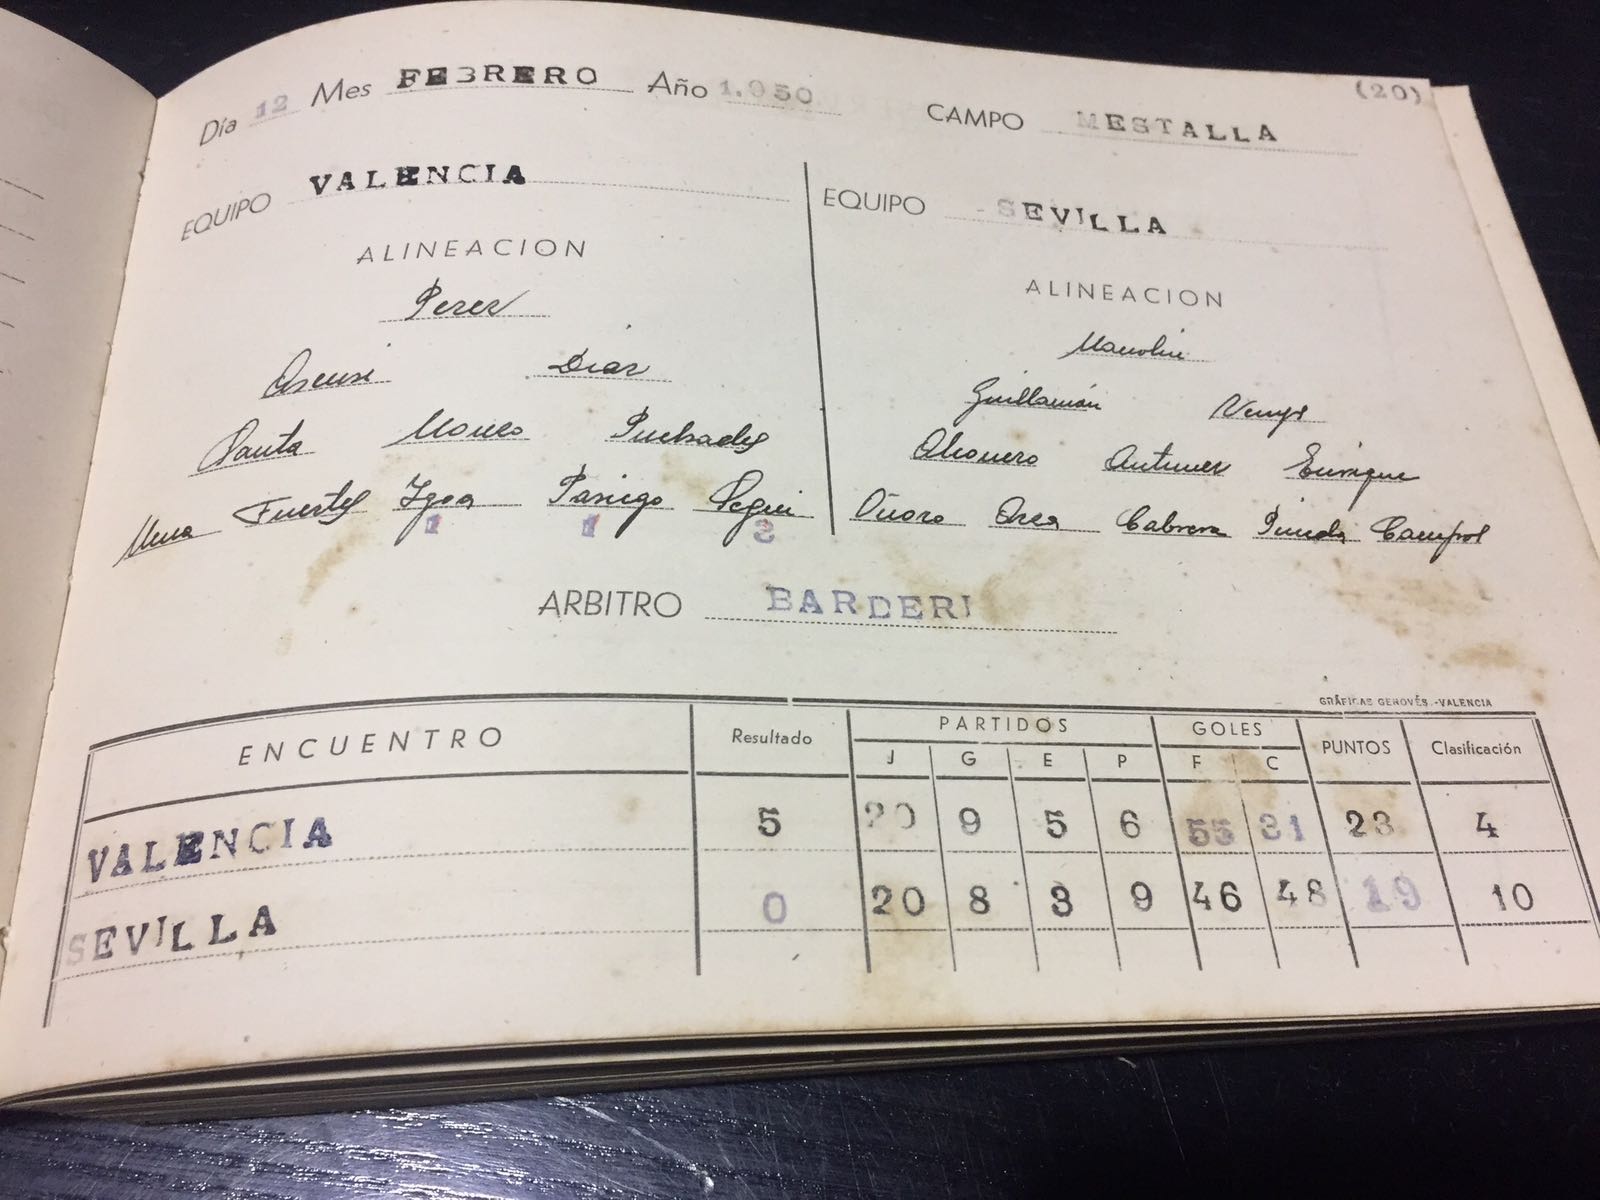 (20)
Día 12 Mes FEBRERO Año 1.950 CAMPO MESTALLA
EQUIPO VALENCIA
EQUIPO SEVILLA
ALINEACION
ALINEACION
Perez
Manolin
Asensi Diaz
Guillamón
Santa Monzo Puchades
Alconero Antunez Enrique
Fuertes Igoa Pasiego Segui
Oñoro Arza Cabrera Pineda Campos
1 1 3
ARBITRO BARDERI
GRÁFICAS GENOVÉS.-VALENCIA
ENCUENTRO Resultado PARTIDOS GOLES PUNTOS Clasificación
J G E P F C
VALENCIA 5 20 9 5 6 55 31 23 4
SEVILLA 0 20 8 3 9 46 48 19 10